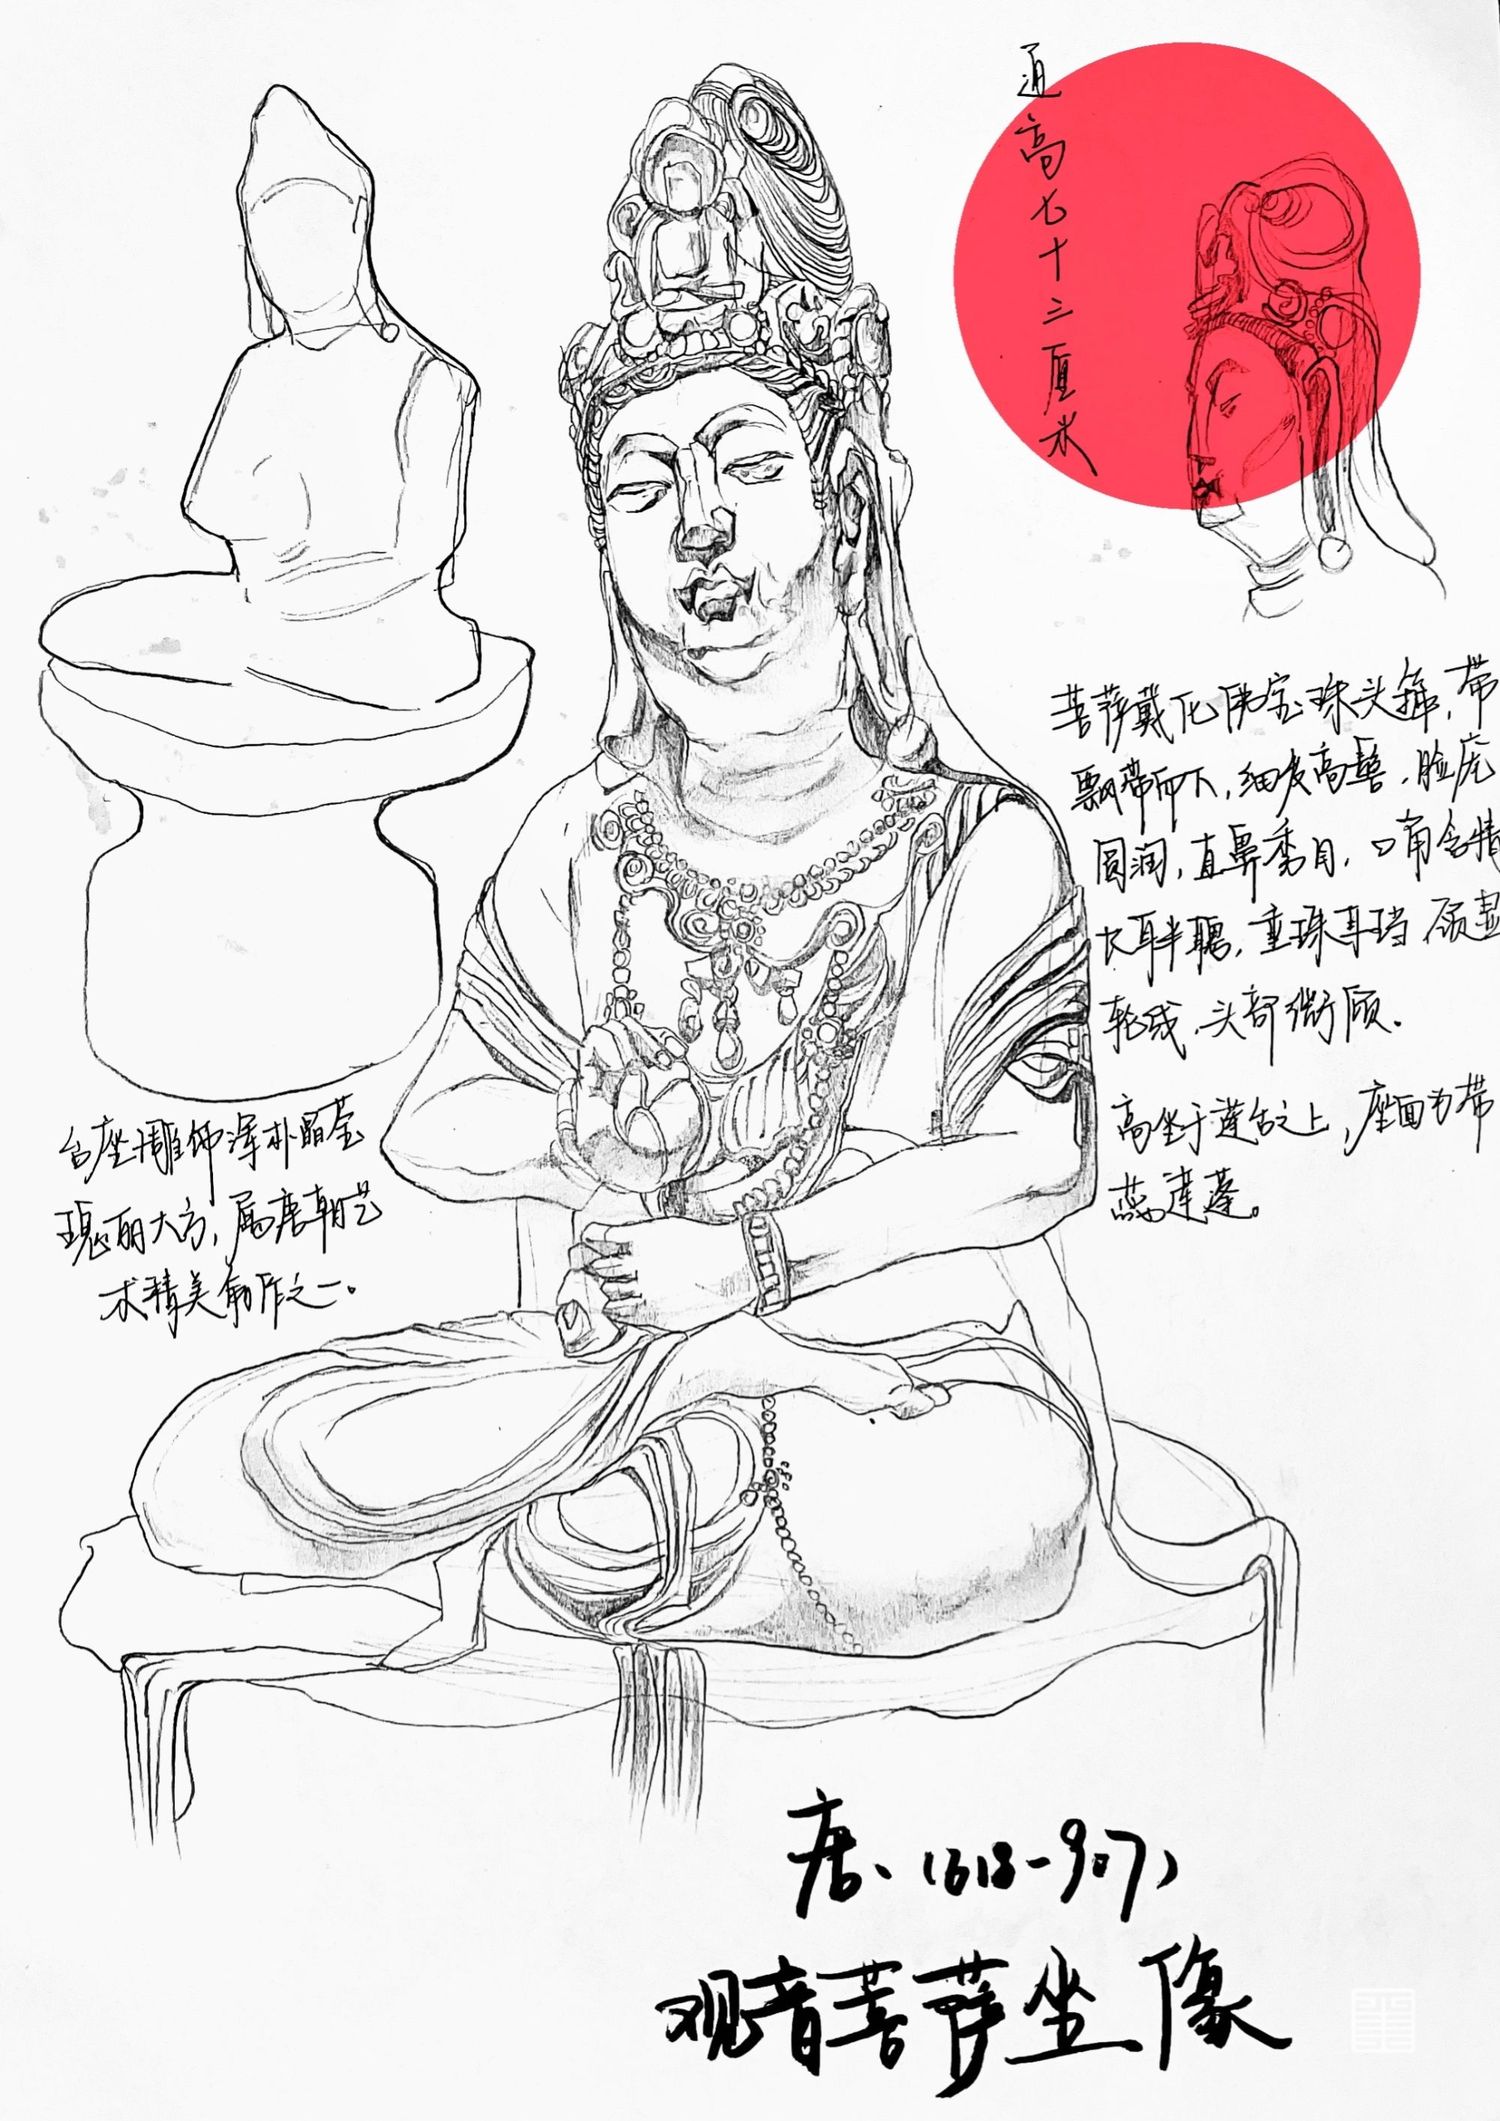 通高七十三厘米
菩萨戴化佛宝珠头箍，带
飘带而下，细发高髻，脸庞
圆润，直鼻秀目，口角含情
大耳半聽，重珠耳珰 颈显
轮线，头部微颀．
高坐于莲台之上，座面为带
蕊莲蓬。
台座雕饰浑朴晶莹
瑰丽大方，属唐朝艺
术精美制作之一。
唐、（618-907）
观音菩萨坐像